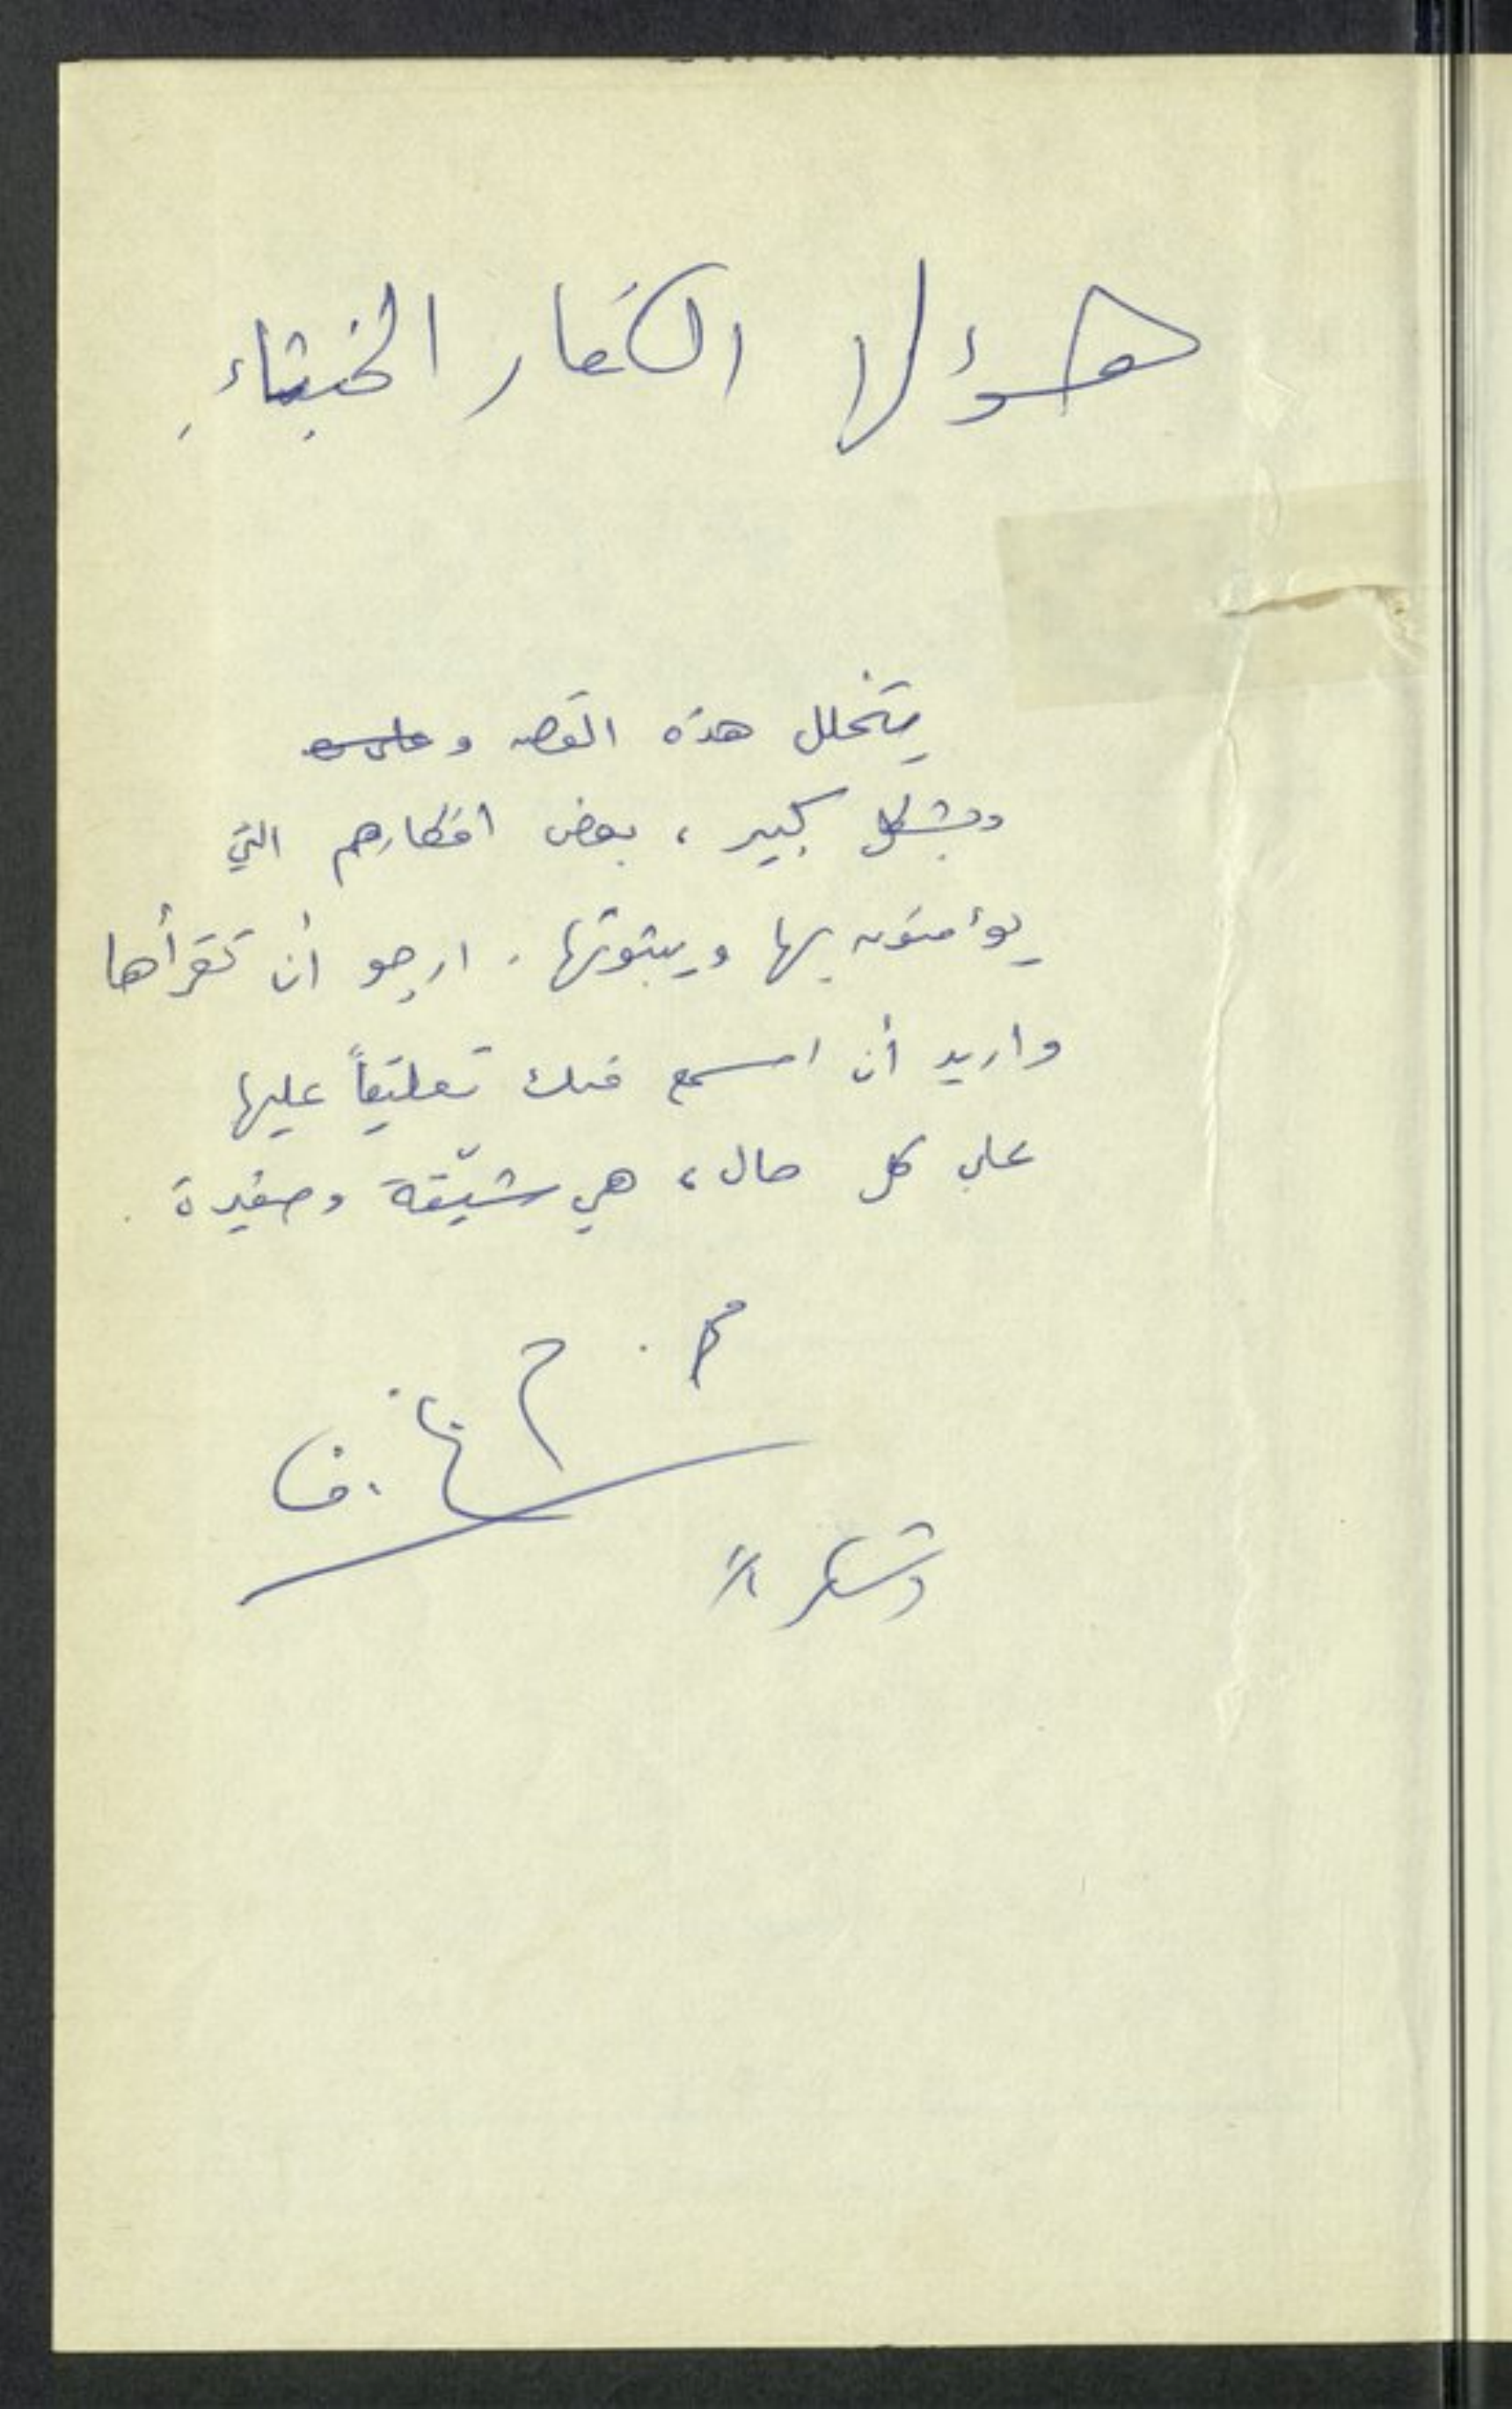 هؤلا الكفار الخبثاءِ
يتخلل هذه القصه و
وبشكل كبير ، بعض افكارهم التي
يؤمنون بها ويبثونها . ارجو أن تقرأها
واريد أن اسمع منك تعليقاً عليها
على كل حال ، هي شيّقة وصغيرة .
وشكراً